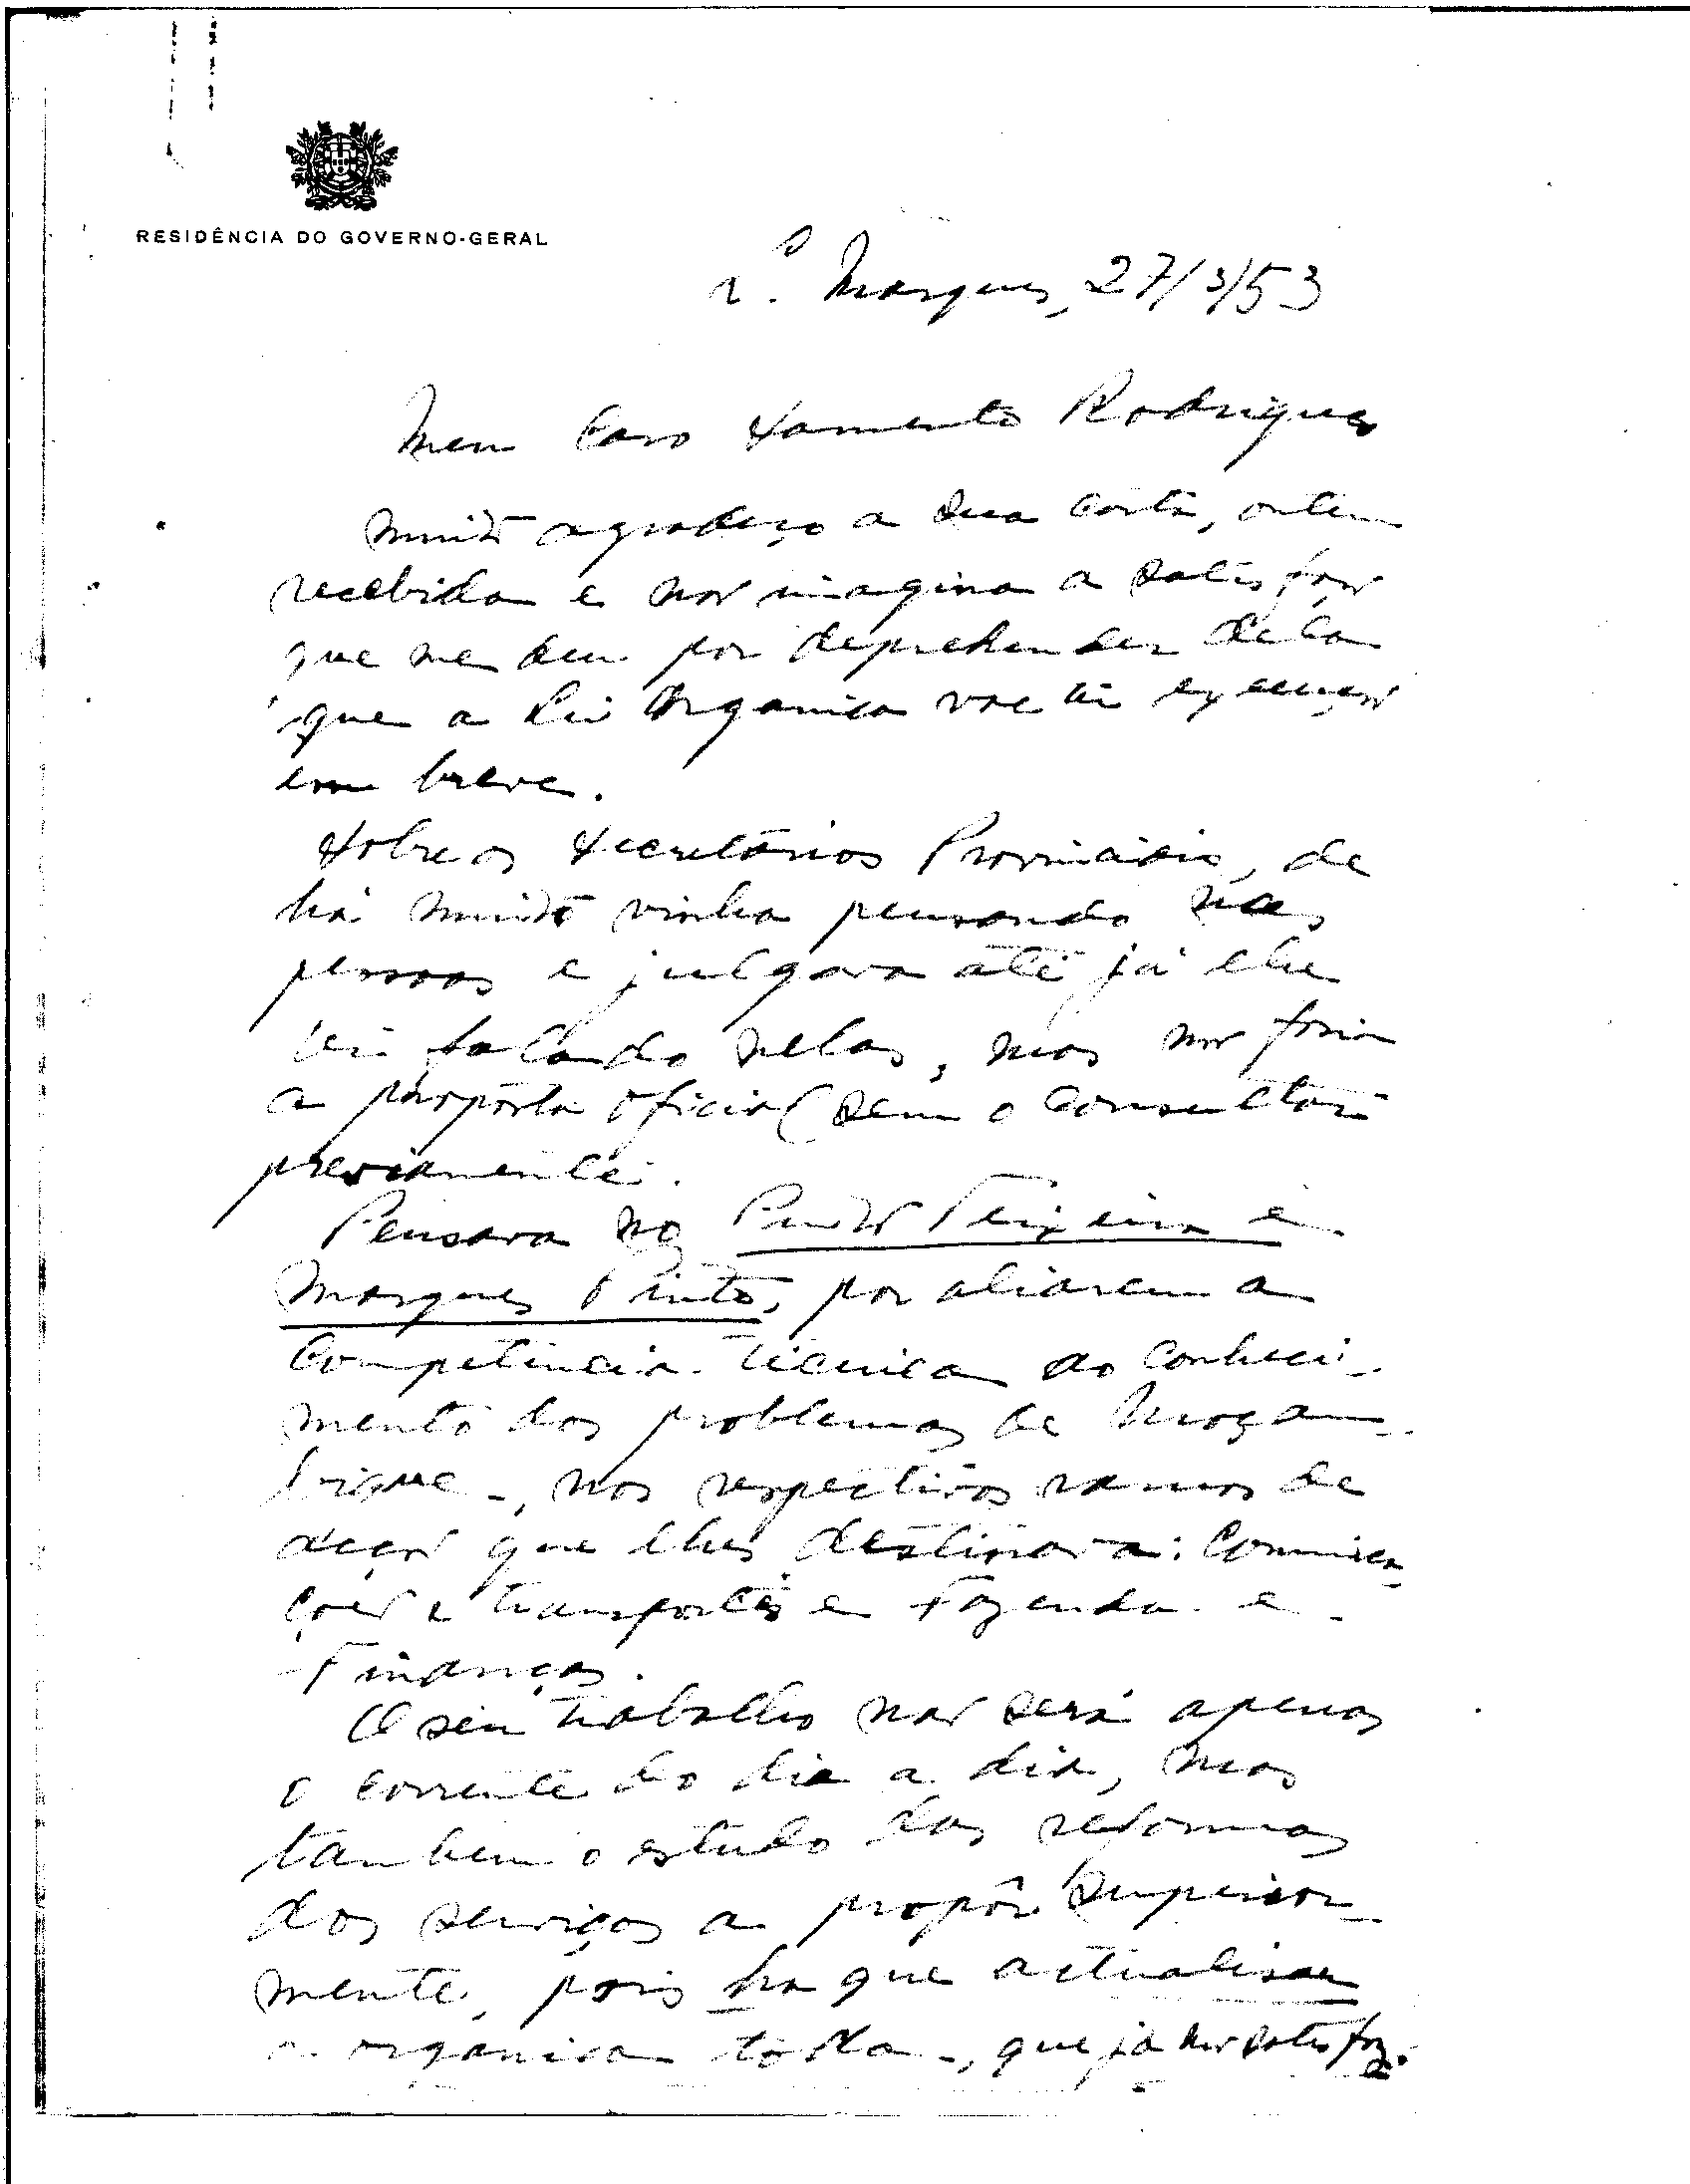 RESIDÊNCIA DO GOVERNO-GERAL
L.ço Marques, 27/3/53
Meu Caro Sarmento Rodrigues
Muito agradeço a sua carta, ontem
recebida e não imagina a satisfação
que me deu por depreender dela
que a Lei Organica vae ter execução
em breve.
Sobre os Secretários Provinciais, de
há muito vinha pensando nas
pessoas e julgava até já lhe
ter falado nelas, mas não faria
a proposta oficial sem o consultar
previamente.
Pensava no Pinto Teixeira e
Marques Pinto, por aliarem a
competencia tecnica ao conheci-
mento dos problemas de Moçam-
bique -, nos respectivos ramos de
acção que lhes destinava: Comunica-
ções e transportes e Fazenda e
Finanças.
O seu trabalho não será apenas
o corrente do dia a dia, mas
tambem o estudo das reformas
dos serviços a propôr superior-
mente, pois ha que actualisar
a organica toda -, que já não satisfaz.